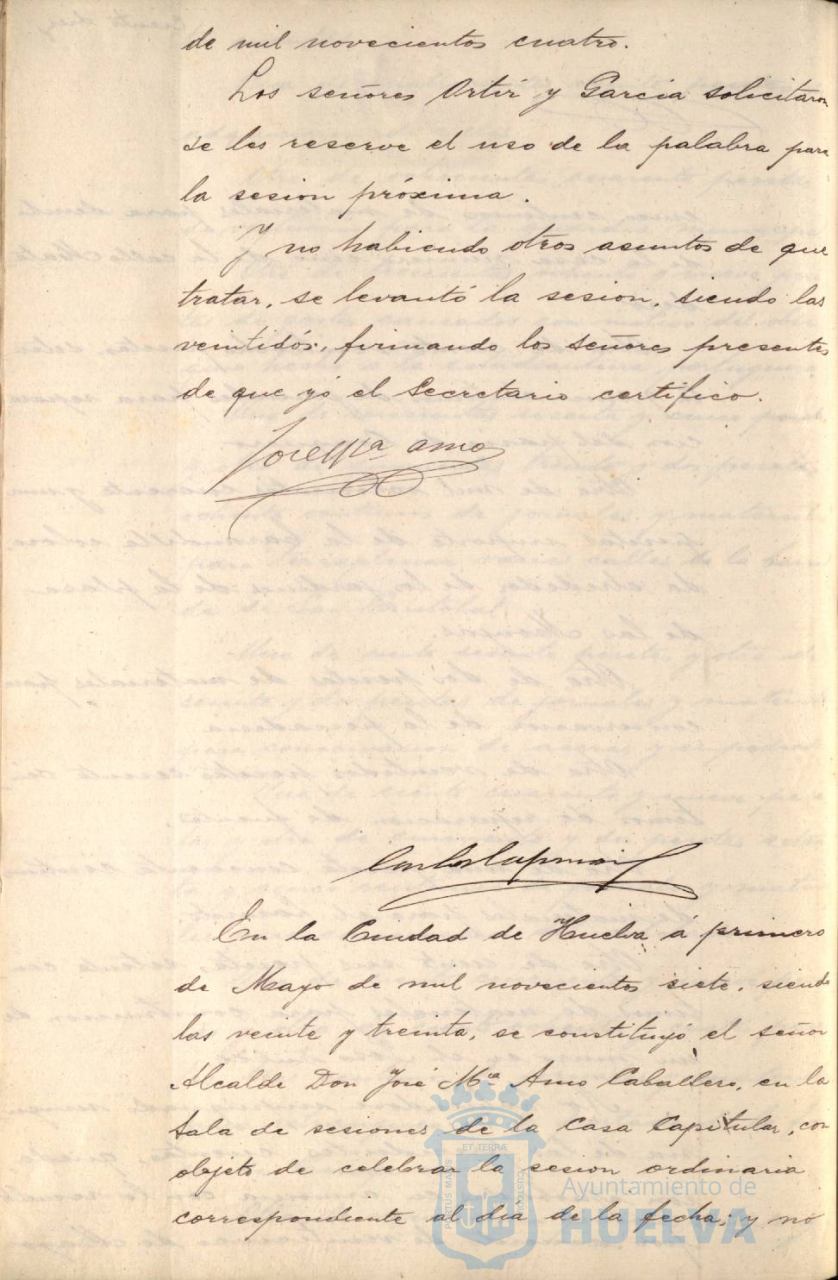 de mil novecientos cuatro.
Los señores Ortiz y Garcia solicitaron
se les reserve el uso de la palabra para
la sesion próxima.
Y no habiendo otros asuntos de que
tratar, se levantó la sesion, siendo las
veintidós, firmando los señores presentes
de que yó el Secretario certifico.
José Mª Amo
En la Ciudad de Huelva á primero
de Mayo de mil novecientos siete, siendo
las veinte y treinta, se constituyó el señor
Alcalde Don José Mª Amo Caballero, en la
Sala de sesiones de la Casa Capitular, con
objeto de celebrar la sesion ordinaria
correspondiente al día de la fecha; y nó
ET TERRA
Ayuntamiento de
HUELVA